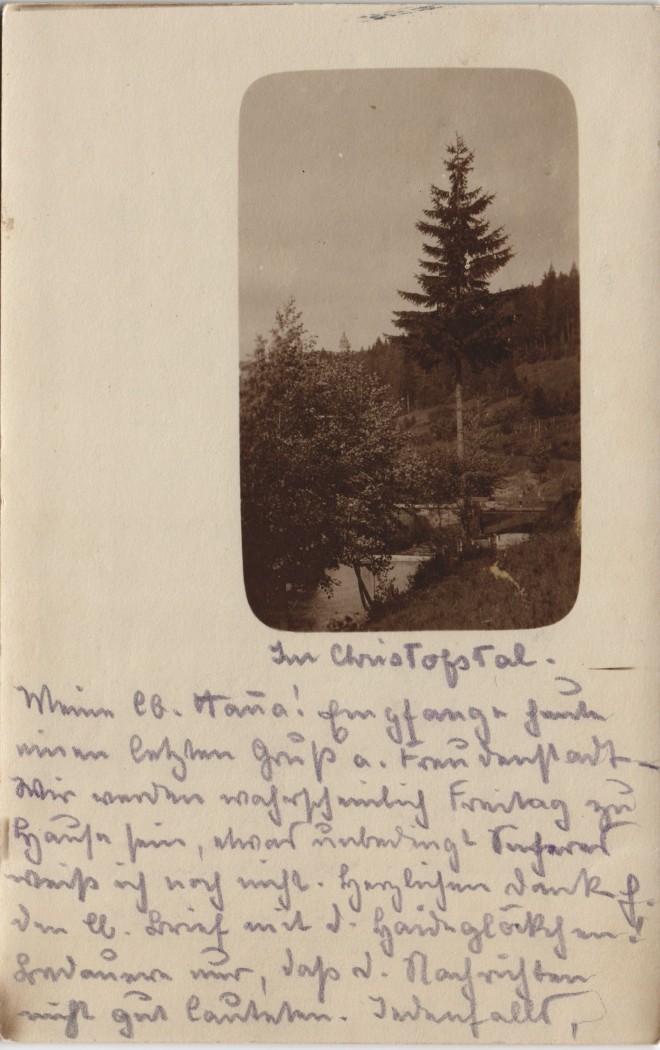 Im Christofstal.
Meine lb. Hana! Empfange heute
einen letzten Gruß a. Freudenstadt –
Wir werden wahrscheinlich Freitag zu
Hause sein, etwas unbedingt Sicheres
weiß ich noch nicht. Herzlichen Dank f.
den lb. Brief mit d. Haideglöckchen!
Bedauere nur, daß d. Nachrichten
nicht gut lauteten. Jedenfalls,